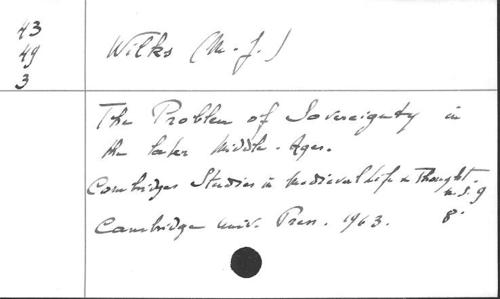 43
49
3
Wilks (M. J.)
The Problem of Sovereignty in
the later Middle-Ages.
Cambridge Studies in Medieval Life & Thought.
n.s. 9
Cambridge Univ. Press. 1963. 8º